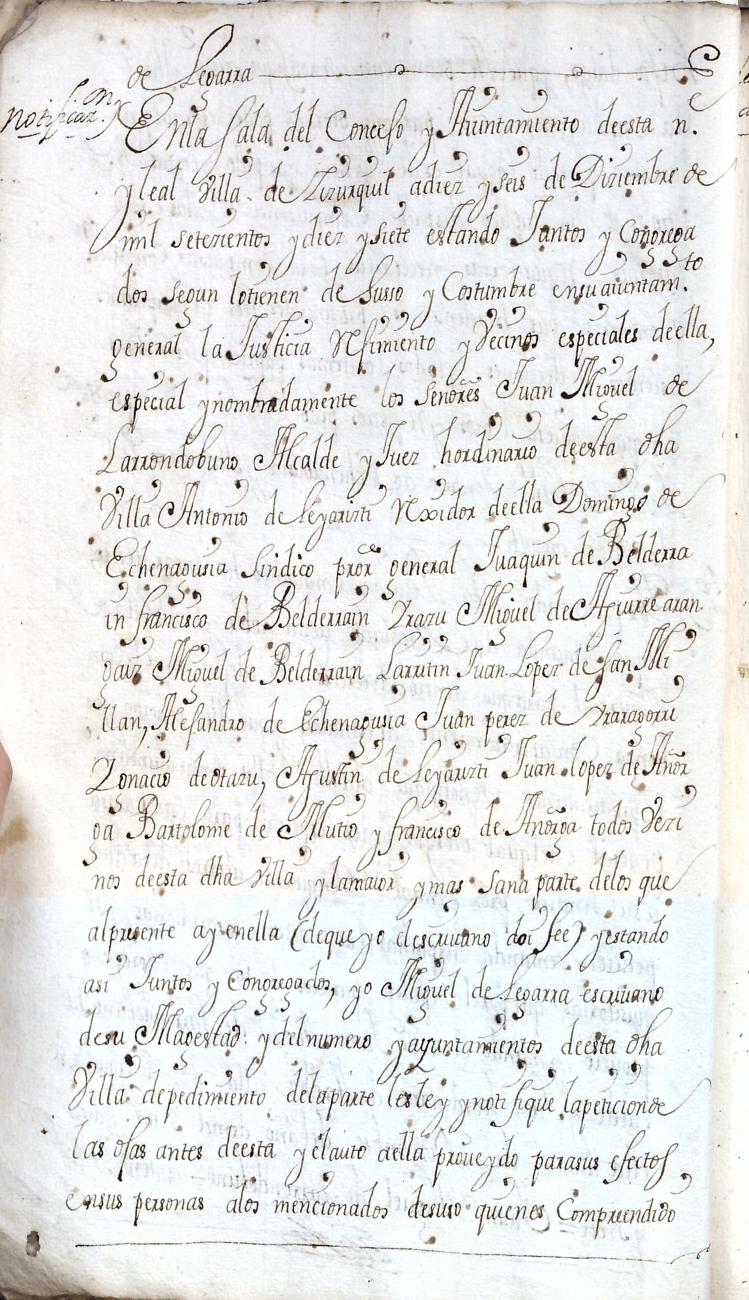 de Legarra
notificaz.on
En la sala del Concejo y Aiuntamiento de esta n.
y leal Villa de Zizurquil a diez y seis de Diziembre de
mil setezientos y diez y siete estando Juntos y Congrega
dos segun lo tienen de Vsso y Costumbre en su aiuntam.to
general la Justicia Rejimiento y Vecinos especiales de ella,
especial y nombradamente los Señores Juan Miguel de
Larrondobuno Alcalde y Juez hordinario de esta dha
Villa Antonio de Leyarizti Rexidor de ella Domingo de
Echenagusia sindico pror general Juaquin de Belderra
in francisco de Belderrain Yrazu Miguel de Aguirre aran
gaiz Miguel de Belderrain Larrutin Juan Lopez de San Mi
llan, Alejandro de Echenagusia Juan perez de Yraragorri
Ygnacio de otazu, Agustin de Leyarizti Juan lopez de Añor
ga Bartolome de Mutio y francisco de Añorga todos Vezi
nos de esta dha Villa y la maior y mas sana parte de los que
al presente ay en ella (de que yo el escriuano doi fee) y estando
asi Juntos y Congregados, yo Miguel de Legarra escriuano
de su Magestad y del numero y ayuntamientos de esta dha
Villa de pedimiento de la parte les ley y notifique la peticion de
las ojas antes de esta y el auto a ella proveydo para sus efectos
en sus personas a los mencionados de suso quienes Compreendido